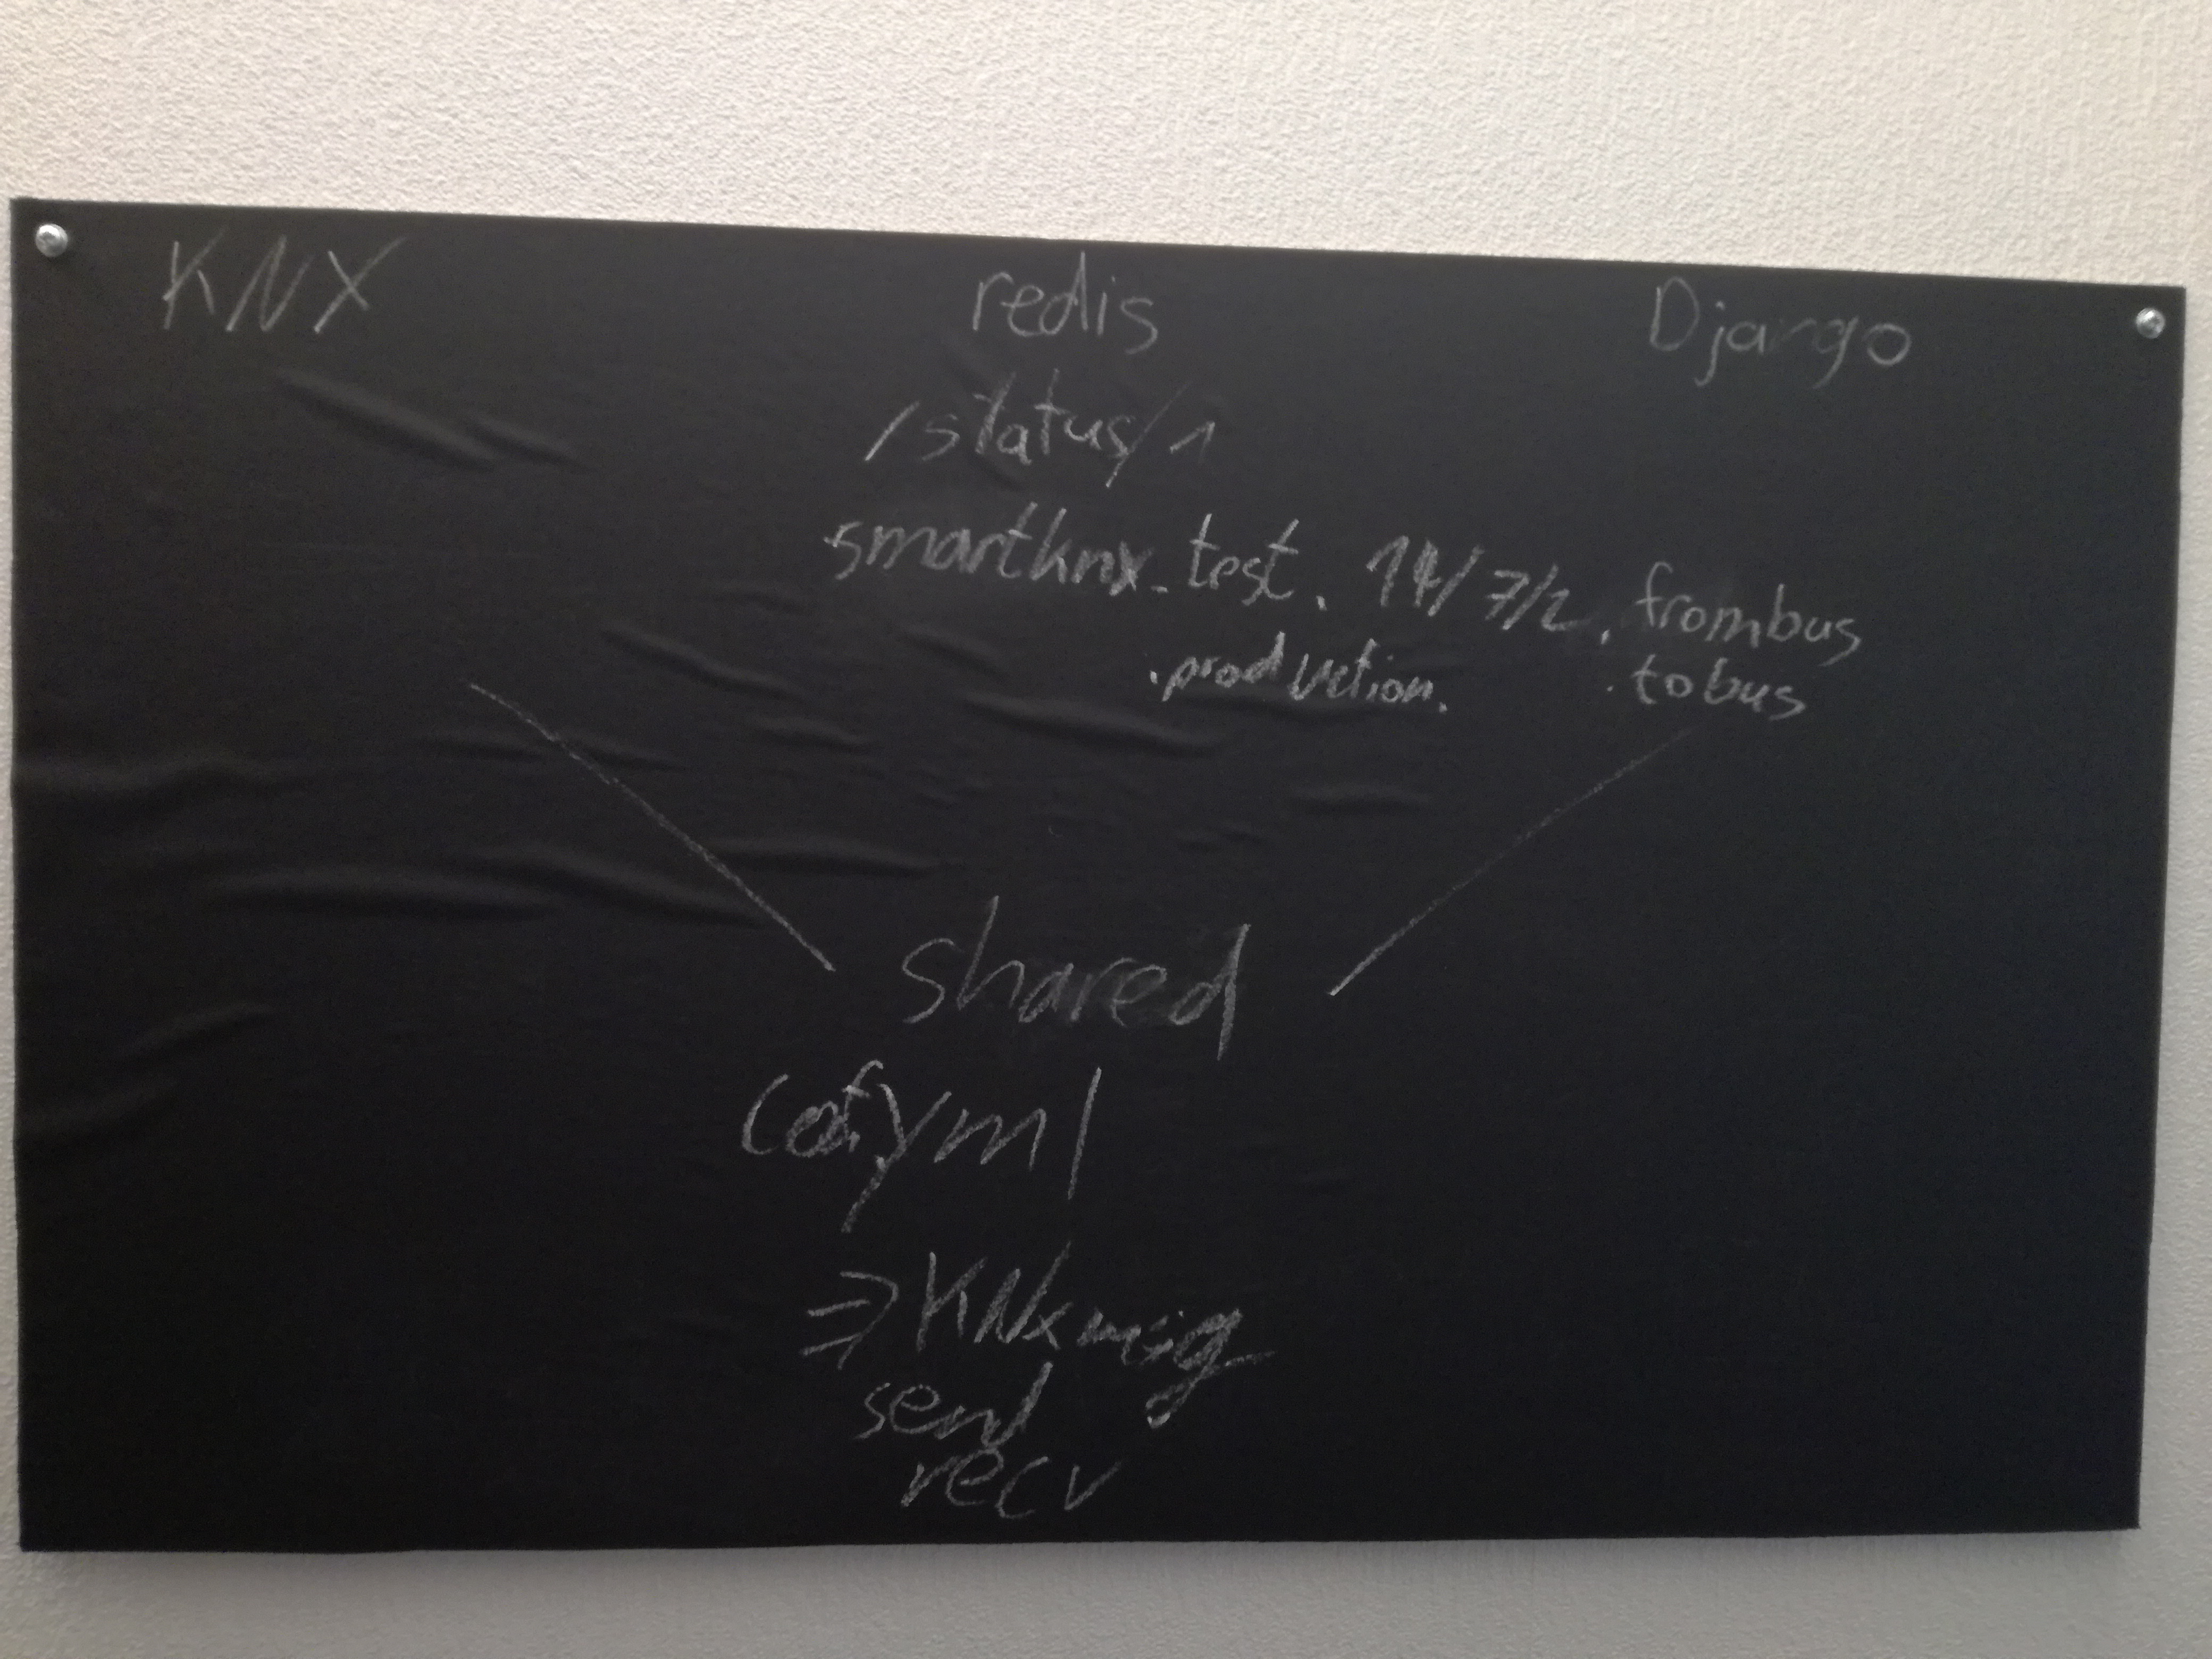 KNX redis Django
/status/1
smartknx_test. 14/7/2. frombus
.production. .tobus
shared
⇒ KNxmsg
send
recv